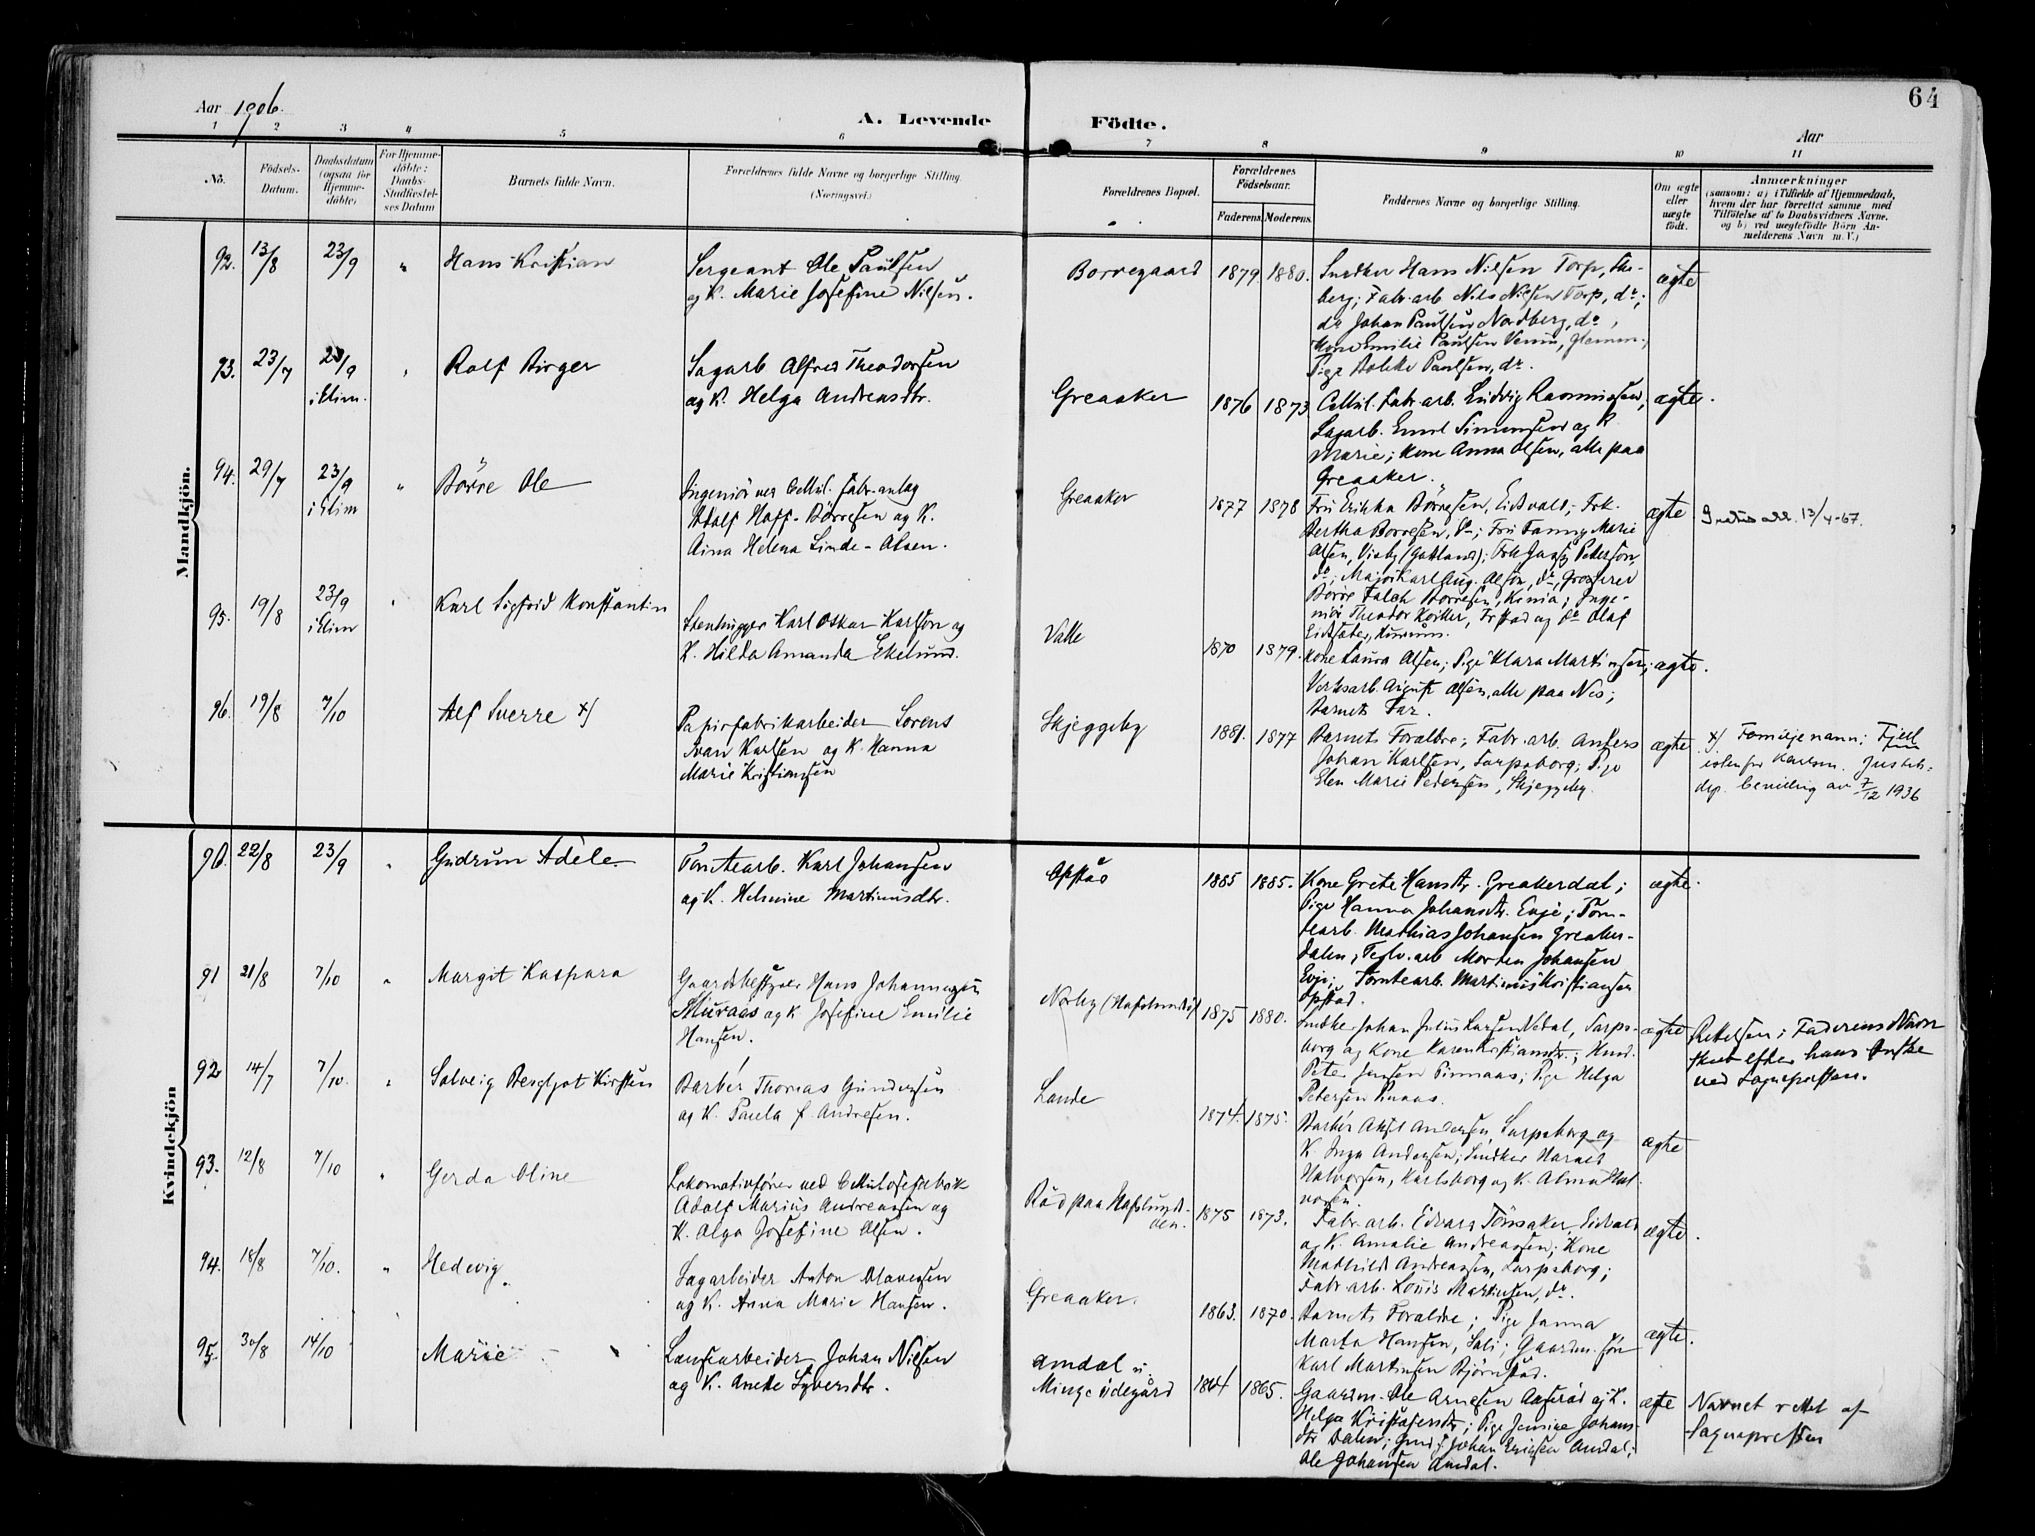 64
Aar 1906.
A. Levende Födte.
Aar
1 2 3 4 5 6 7 8 9 10 11
No.
Födsels-Datum.
Daabsdatum (ogsaa for Hjemme-døbte)
For Hjemme-döbte: Daabs-Stadfæstel-ses Datum
Barnets fulde Navn.
Forældrenes fulde Navne og borgerlige Stilling.
(Næringsvei.)
Forældrenes Bopæl.
Forældrenes Födselsaar.
Faderens. Moderens.
Faddernes Navne og borgerlige Stilling.
Om ægte eller uægte födt.
Anmærkninger
(saasom: a) i Tilfælde af Hjemmedaab,
hvem der har forrettet samme med
Tilföielse af to Daabsvidners Navne.
og b) ved uægtefödte Börn An-
melderens Navn m.V.)
Mandkjön.
92. 13/8 23/9 " Hans Kristian
Sergeant Ole Paulsen
og K. Marie Josefine Nilsen.
Borregaard 1879 1880.
Snedker Hans Nilsen Torp,
berg; Fabr.arb Nils Nilsen Torp, do;
do Johan Paulsen Nordberg, do,
Kone Emilie Paulsen
Pige Paulsen, do.
ægte
93. 23/7 23/9 " Rolf Birger
Sagarb Alfred Theodorsen
og K. Helga Andreasdtr.
Greaaker 1876 1873
Cellul. Fabr. arb. Ludvig Rasmussen,
Sagarb. Emil Simensen og K.
Marie; Kone Anna Olsen, alle paa
Greaaker.
ægte.
94. 29/7 23/9 " Börre Ole
Ingeniör ved Cellul. fabr. anlag
Adolf Hoff-Börresen og K.
Aina Helena Linde-Olsen.
Greaaker 1877 1878
Fru Erikka Börresen, Eidsvold; Frk.
Bertha Börresen, do; Fru Fanny Marie
Olsen, Visby (Gotland); Frk Petersön,
do; Major Karl Aug. Olsön, do, Grosserer
Börre Falch Börresen, Kinia; Inge-
niör Theodor og do Olaf
ægte
13/4-67.
95. 19/8 23/9 " Karl Sigfrid Konstantin
Stenhugger Karl Oskar Karlson og
K. Hilda Amanda Ekelund.
Valle 1870 1879.
Kone Laura Olsen; Pige Klara Martinsen;
Verksarb. August Olsen, alle paa Nes;
Barnets Far.
ægte.
96. 19/8 7/10 Alf Sverre x)
Papirfabrikarbeider Lorens
Ivan Karlsen og K. Hanna
Marie Kristiansen
Skjeggeby 1881. 1877
Barnets Forældre; Fabr. arb. Anders
Johan Karlsen, Sarpsborg; Pige
Elen Marie Pedersen, Skjeggeby.
ægte
x) Familjenavn: Fjell
istenfor Karlsen. Justits-
dep. bevilling av 7/12 1936
Kvindekjön
90. 22/8 23/9 " Gudrun Adèle
Tomtearb. Karl Johansen
og K. Helmine Martinusdtr.
Opstad 1885 1885.
Kone Grete Hansdtr. Greakerdal;
Pige Hanna Johansdtr. Evje; Tom-
tearb. Mathias Johansen Greaker-
dalen, Teglv. arb Morten Johansen
Evje; Tomtearb. Martinus Kristiansen
Opstad.
ægte.
91 21/8 7/10 " Margit Kaspara
Gaardbestyrer Hans Johannesen
Skuraas og K. Josefine Emilie
Hansen.
Norby (Hafslundsöy) 1875 1880.
Snedker Johan Julius Larsen Nedal, Sarps-
borg og Kone Karen Kristiansdtr.;
Peter Jensen Pinnaas; Pige Helga
Petersen Pinaas.
ægte
Rettelsen i Faderens Navn
skeet efter hans Önske
ved Sognepresten.
92 14/7 7/10. " Solveig Bergljot Kirsten
Barbér Thomas Gundersen
og K. Paula f. Andresen.
Lande 1874. 1875.
Barbér Aksel Andersen, Sarpsborg og
K. Inga Andersen; Snedker Harald
Halvorsen, Karlsborg og K. Alma Hal-
vorsen.
ægte
93. 12/8 7/10 " Gerda Oline
Lokomotivförer ved Cellulosefabrik
Adolf Marius Andreassen og
K. Olga Josefine Olsen.
Röd paa Hafslundsöen. 1875 1873.
Fabr. arb. Edvard Tönsaker, Eidvold
og K. Amalie Andreassen; Kone
Mathild Andreassen, Sarpsborg;
Fabr. arb. Louis Martinsen, do.
ægte.
94. 18/8 7/10. " Hedevig
Sagarbeider Anton Olavesen
og K. Anna Marie Hansen.
Greaaker. 1863. 1870.
Barnets Forældre; Pige Janna
Marta Hansen, Soli; Gaardm. sön
Karl Martinsen Björnstad.
ægte.
95. 30/8 14/10 Marie
Lensearbeider Johan Nilsen
og K. Anette Syversdtr.
Amdal u.
Minge ödegård 1864 1865.
Gaardm. Ole Arnesen Aaseröd og K.
Helga Kristofersdtr; Pige Jensine Johans-
dtr Dalen; Johan Eriksen Amdal;
Ole Johansen Amdal.
ægte
Navnet rettet af
Sognepresten